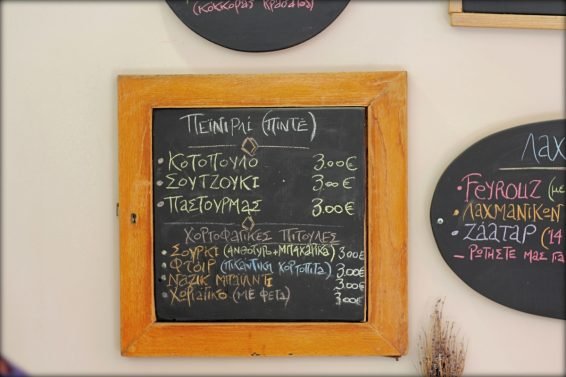 (ΚΟΚΚΟΡΑΣ ΚΡΑΣΑΤΟΣ)
ΠΕΪΝΙΡΛΙ (ΠΙΝΤΕ)
• ΚΟΤΟΠΟΥΛΟ 3.00€
• ΣΟΥΤΖΟΥΚΙ 3.00€
• ΠΑΣΤΟΥΡΜΑΣ 3.00€
ΧΟΡΤΟΦΑΓΙΚΕΣ ΠΙΤΟΥΛΕΣ
• ΣΟΥΡΚΙ (ΑΝΘΟΤΥΡΟ + ΜΠΑΧΑΡΙΚΑ) 3.00€
• ΦΤΟΪΡ (ΠΙΚΑΝΤΙΚΗ ΧΟΡΤΟΠΙΤΑ) 3.00€
• ΝΑΖΙΚ ΜΠΑΪΛΝΤΙ 3.00€
• ΧΩΡΙΑΤΙΚΟ (ΜΕ ΦΕΤΑ) 3.00€
ΛΑΧ
• FEYROUZ (με
• ΛΑΧΜΑΝΙΚΩΝ
• ΖΑΑΤΑΡ ('14
– ΡΩΤΗΣΤΕ ΜΑΣ ΓΙΑ